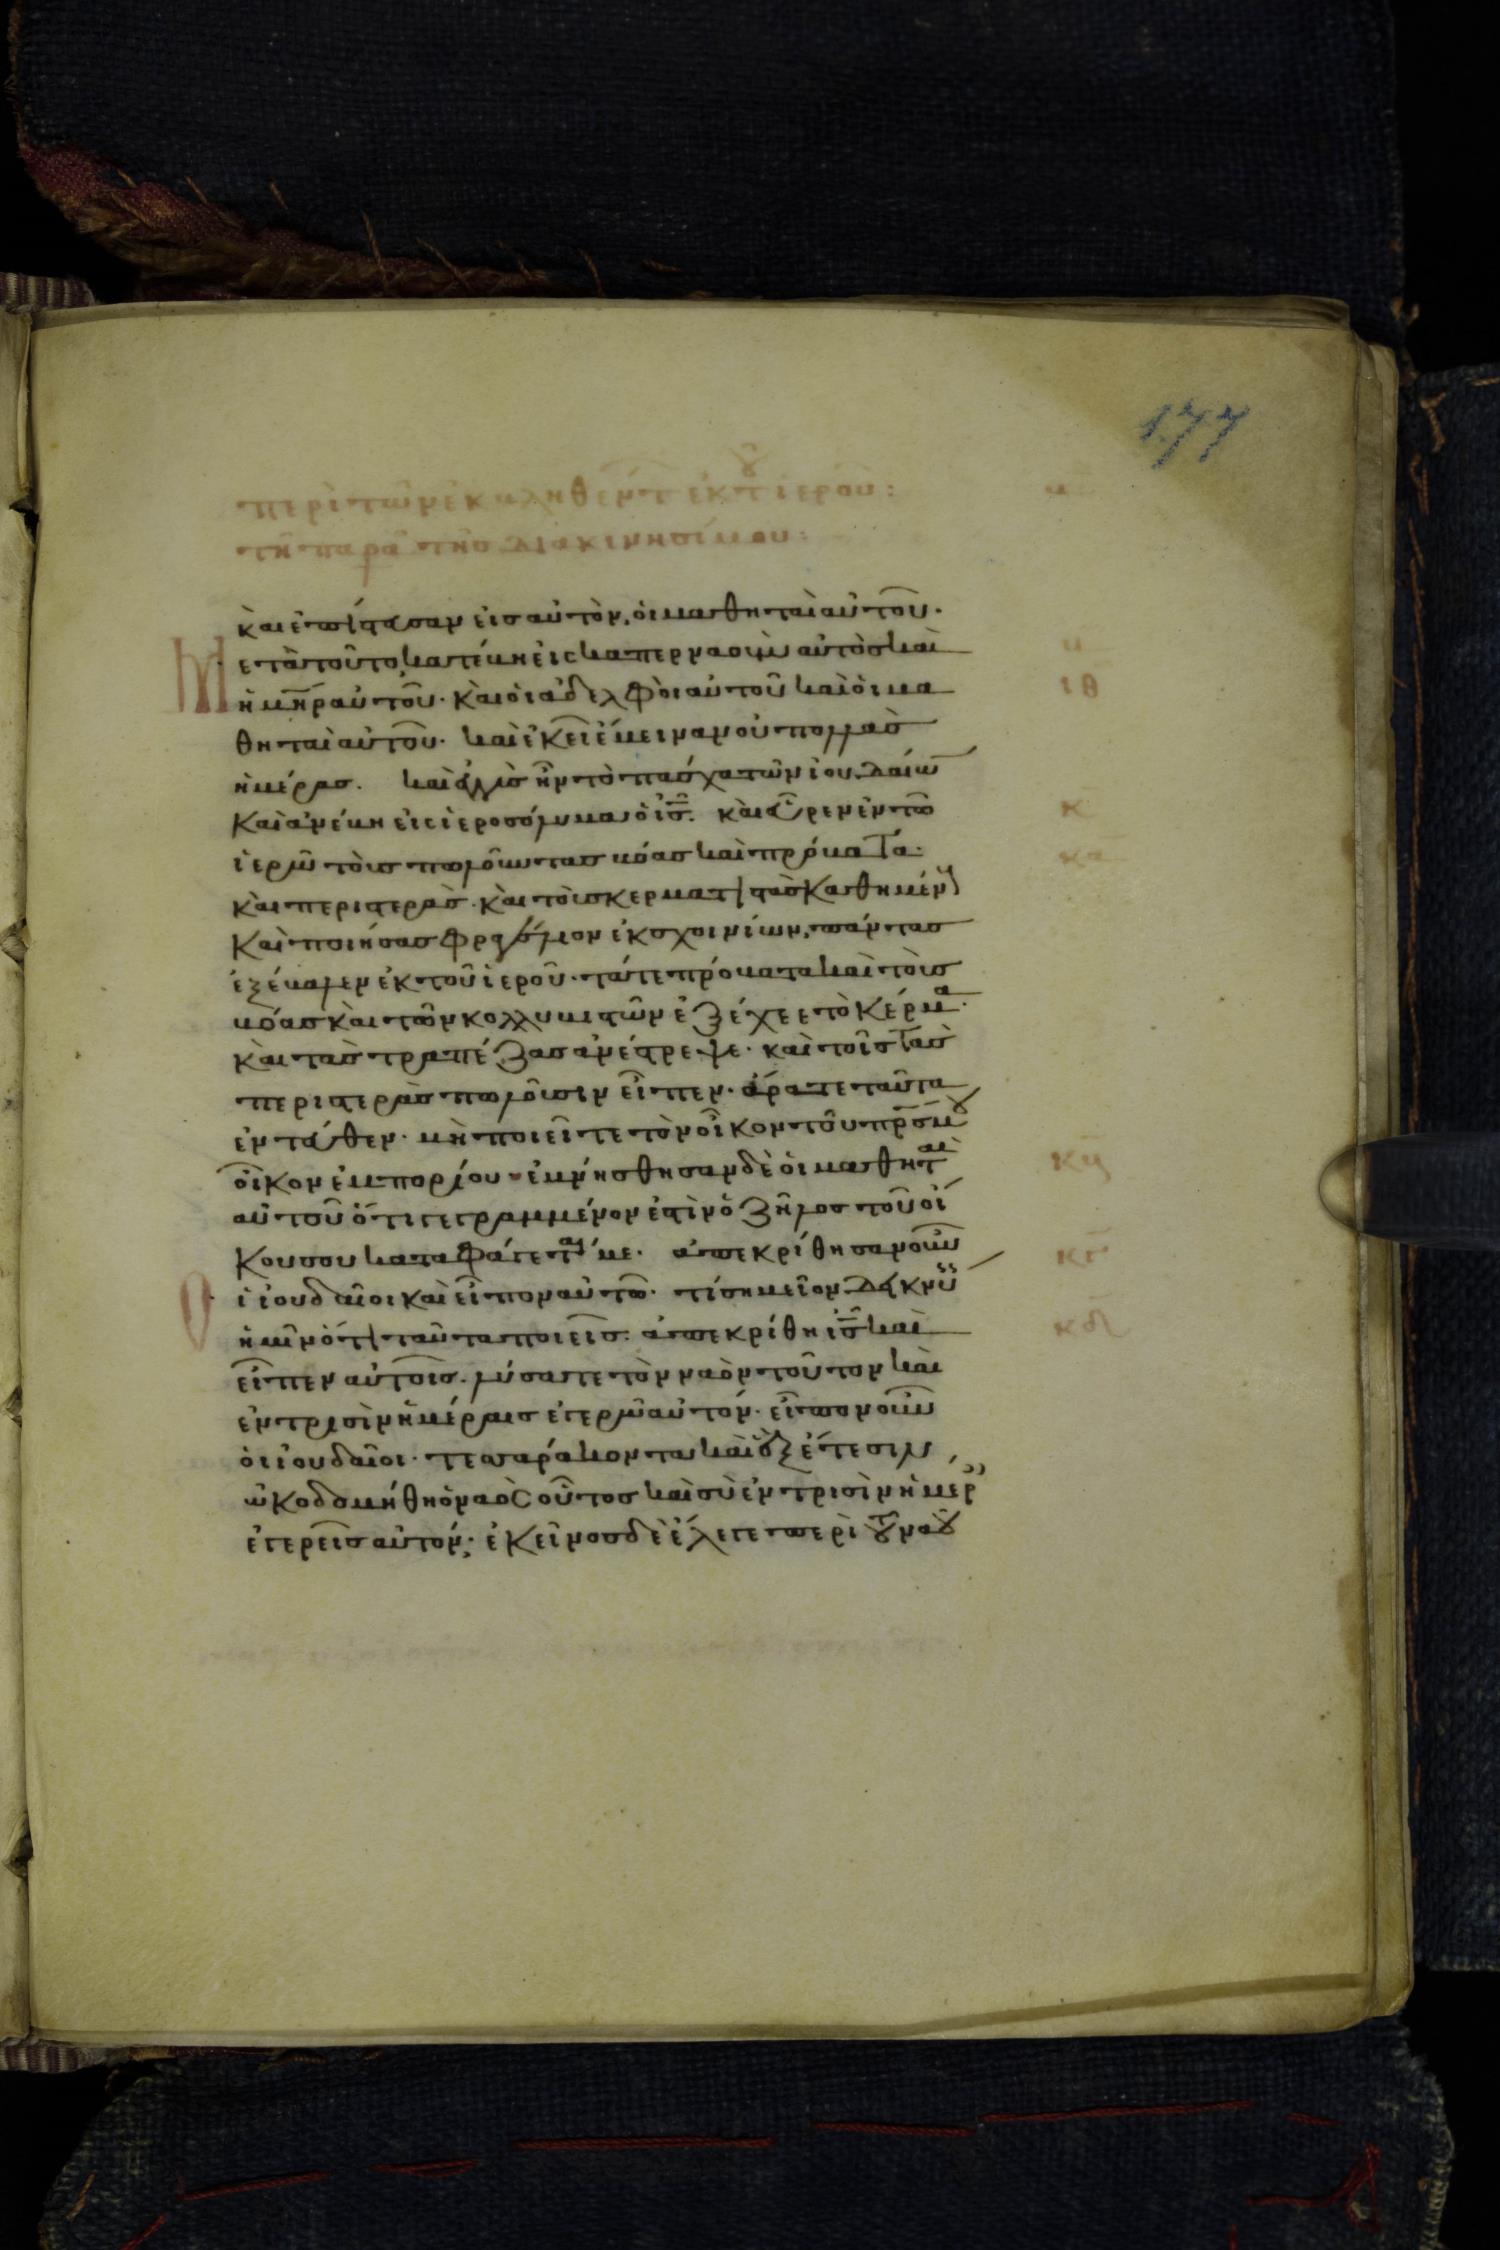 177
περὶ τῶν ἐκβληθέντ ἐκ τ ἱεροῦ: β
τῆ παρα τῆσ διακινησίμου:
κὰι ἐπίστευσαν ἐισ αὐτὸν, ὁι μαθηταὶ αὐτοῦ·
Μετὰ τοῦτο, κατέβη ἐις καπερναοὺμ αὐτὸσ καὶ β
ἡ μηρ αὐτοῦ· κὰι ὁι ἀδελφὸι αὐτοῦ καὶ ὁι μα ιθ
θηταὶ αὐτοῦ· καὶ ἐκεῖ ἔμειναν οὐ πολλὰσ
ἡμέρασ. καὶ ἐγγὺσ ἦν τὸ πάσχα τῶν ἰουδαίω
Καὶ ἀνέβη ἐισ ἱεροσόλυμα ὁ ισ. κὰι εὗρεν ἐν τῶ κ
ἱερῶ τὸυσ πωλοῦντασ βόασ καὶ πρόβατα· κα
κὰι περιστερὰσ· κὰι τὸυσ κερματιστὰσ καθημέν
Καὶ ποιήσασ φραγέλλιον ἐκ σχοινίων, πάντασ
ἐξέβαλεν ἐκ τοῦ ἱεροῦ· τάτε πρόβατα καὶ τὸυσ
βόασ κὰι τῶν κολλυβιστῶν ἐξέχεε τὸ κέρμα·
κὰι τὰσ τραπέζασ ἀνέστρεψε· καὶ τοῖσ τὰσ
περιστερὰσ πωλοῦσιν εἶπεν· ἄρατε ταῦτα
ἐντεῦθεν· μὴ ποιεῖτε τὸν οἶκον τοῦ πρσ μου
οἶκον ἐμπορίου· ἐμνήσθησαν δὲ ὁι μαθηταὶ κβ
αὐτοῦ ὅτι γεγραμμένον ἐστὶν ὁ ζῆλοσ τοῦ οἴ
κου σου καταφάγεταί με· ἀπεκρίθησαν οὖν κγ
Οἱ ἰουδαῖοι καὶ εἶπον αὐτῶ· τί σημεῖον δεικνύεισ
ἡμῖν ὅτι ταῦτα ποιεῖσ: ἀπεκρίθη ισ καὶ κδ
εἶπεν αὐτοῖσ· λύσατε τὸν ναὸν τοῦτον καὶ
ἐν τρισὶν ἡμέραισ ἐγερῶ αὐτόν· εἶπον οὖν
ὁι ἰουδαῖοι· τεσσαράκοντα καὶ ἓξ ἔτεσιν
ὠκοδομήθη ὁ ναὸς οὗτοσ καὶ σὺ ἐν τρισὶν ἡμέρ
ἐγερεῖσ αὐτόν; ἐκεῖνοσ δὲ ἔλεγε περὶ τοῦ ναοῦ